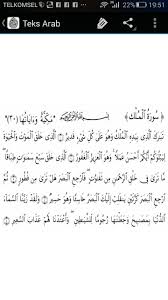 TELKOMSEL 92% 19:51
Teks Arab
﴿سُورَةُ الْمُلْكِ﴾ بِسْمِ اللَّهِ الرَّحْمَنِ الرَّحِيمِ ﴿مَكِّيَّةٌ وَءَايَاتُهَا ٣٠﴾
تَبَارَكَ الَّذِي بِيَدِهِ الْمُلْكُ وَهُوَ عَلَى كُلِّ شَيْءٍ قَدِيرٌ ۝ الَّذِي خَلَقَ الْمَوْتَ وَالْحَيَوٰةَ
لِيَبْلُوَكُمْ أَيُّكُمْ أَحْسَنُ عَمَلًا ۚ وَهُوَ الْعَزِيزُ الْغَفُورُ ۝ الَّذِي خَلَقَ سَبْعَ سَمَوَاتٍ طِبَاقًا ۖ
مَا تَرَى فِي خَلْقِ الرَّحْمَنِ مِنْ تَفَاوُتٍ ۖ فَارْجِعِ الْبَصَرَ هَلْ تَرَى مِنْ فُطُورٍ ۝ ثُمَّ
ارْجِعِ الْبَصَرَ كَرَّتَيْنِ يَنْقَلِبْ إِلَيْكَ الْبَصَرُ خَاسِئًا وَهُوَ حَسِيرٌ ۝ وَلَقَدْ زَيَّنَّا السَّمَاءَ
الدُّنْيَا بِمَصَابِيحَ وَجَعَلْنَاهَا رُجُومًا لِلشَّيَاطِينِ ۖ وَأَعْتَدْنَا لَهُمْ عَذَابَ السَّعِيرِ ۝